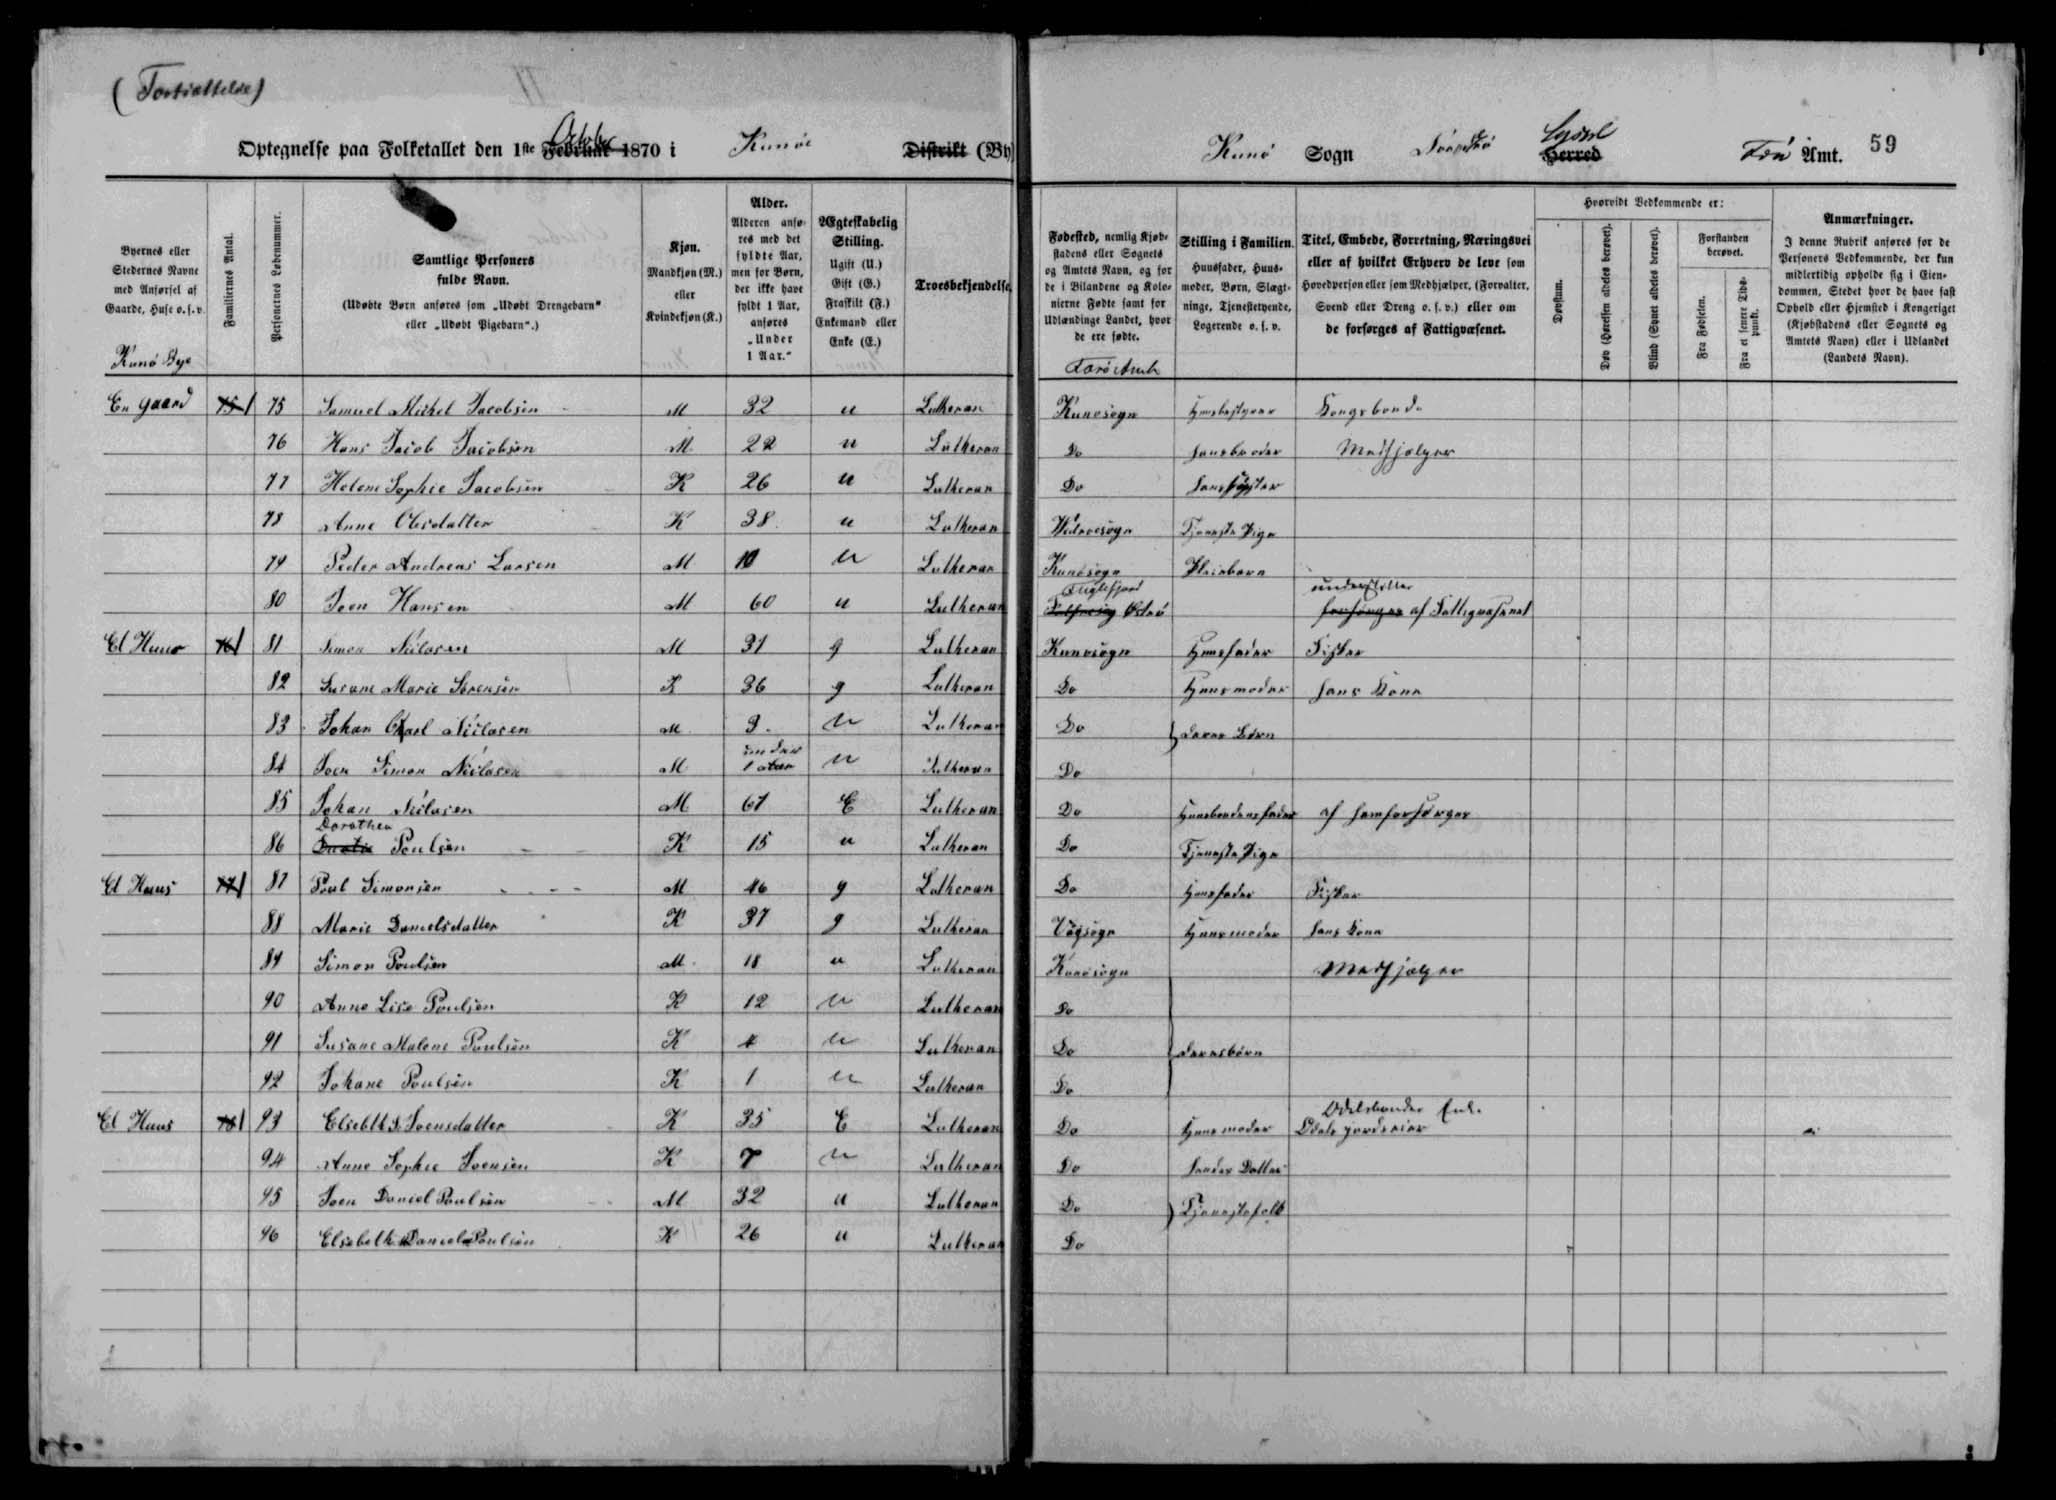 (Fortsættelse)
Optegnelse paa Folketallet den 1ste Februar October 1870 i Kunøe Distrikt (By)
Kunø Sogn Norderø Herred Syssel Færø Amt. 59
Byernes eller Stedernes Navne med Anførsel af Gaarde, Huse o. s. v.
Familiernes Antal.
Personernes Løbenummer.
Samtlige Personers fulde Navn.
(Udøbte Børn anføres som „Udøbt Drengebarn" eller „Udøbt Pigebarn".)
Kjøn.
Mandkjøn (M.) eller Kvindekjøn (K.)
Alder.
Alderen anføres med det fyldte Aar, men for Børn, der ikke have fyldt 1 Aar, anføres „Under 1 Aar."
Ægteskabelig Stilling.
Ugift (U.) Gift (G.) Fraskilt (F.) Enkemand eller Enke (E.)
Troesbekjendelse
Fødested, nemlig Kjøbstadens eller Sognets og Amtets Navn, og for de i Bilandene og Kolonierne Fødte samt for Udlændinge Landet, hvor de ere fødte.
Stilling i Familien.
Huusfader, Huusmoder, Børn, Slægtninge, Tjenestetyende, Logerende o. s. v.
Titel, Embede, Forretning, Næringsvei eller af hvilket Erhverv de leve som Hovedperson eller som Medhjælper, (Forvalter, Svend eller Dreng o. s. v.) eller om de forsørges af Fattigvæsenet.
Hvorvidt Vedkommende er:
Døvstum.
Døv (Hørelsen aldeles berøvet).
Blind (Synet aldeles berøvet).
Forstanden berøvet.
Fra Fødselen.
Fra et senere Tidspunkt.
Anmærkninger.
I denne Rubrik anføres for de Personers Vedkommende, der kun midlertidig opholde sig i Eiendommen, Stedet hvor de have fast Ophold eller Hjemsted i Kongeriget (Kjøbstadens eller Sognets og Amtets Navn) eller i Udlandet (Landets Navn).
Kunø Bye
Færø Amt
En Gaard 15 1 75 Samuel Michel Jacobsen M 32 u Lutheran Kunøsogn Huusbestyrer Kongsbonde
76 Hans Jacob Jacobsen M 22 u Lutheran Do hans broder Medhjælper
77 Helene Sophie Jacobsen K 26 u Lutheran Do hans søster
78 Anne Olesdatter K 38 u Lutheran Tjeneste Pige
79 Peder Andreas Larsen M 10 u Lutheran Kunøsogn Pleiebarn
80 Joen Hansen M 60 u Lutheran Fuglefjord Østerø understøttes forsørges af Fattigvæsenet
Et Huus 16 1 81 Simon Niclasen M 31 g Lutheran Kunøsogn Huusfader Fisker
82 Susane Marie Sørensen K 36 g Lutheran Do Huusmoder hans Kone
83 Johan Carl Niclasen M 3 u Lutheran Do deres Børn
84 Joen Simon Niclasen M under 1 Aar u Lutheran Do
85 Johan Niclasen M 67 E Lutheran Do Huusbondens fader af ham forsørges
86 Dorothea Poulsen K 15 u Lutheran Do Tjeneste Pige
Et Huus 17 1 87 Poul Simonsen M 46 g Lutheran Do Huusfader Fisker
88 Marie Danielsdatter K 37 g Lutheran Vågsogn Huusmoder hans Kone
89 Simon Poulsen M 18 u Lutheran Kunøsogn Medhjælper
90 Anne Lise Poulsen K 12 u Lutheran Do
91 Susane Malene Poulsen K 4 u Lutheran Do deres børn
92 Johane Poulsen K 1 u Lutheran Do
Et Huus 18 1 93 Elsebeth S. Joensdatter K 35 E Lutheran Do Huusmoder Odelsbondes Enke Odels jordeier
94 Anne Sophie Joensen K 7 u Lutheran Do hendes Datter
95 Joen Daniel Poulsen M 32 u Lutheran Do Tjenestefolk
96 Elsebeth Daniel Poulsen K 26 u Lutheran Do